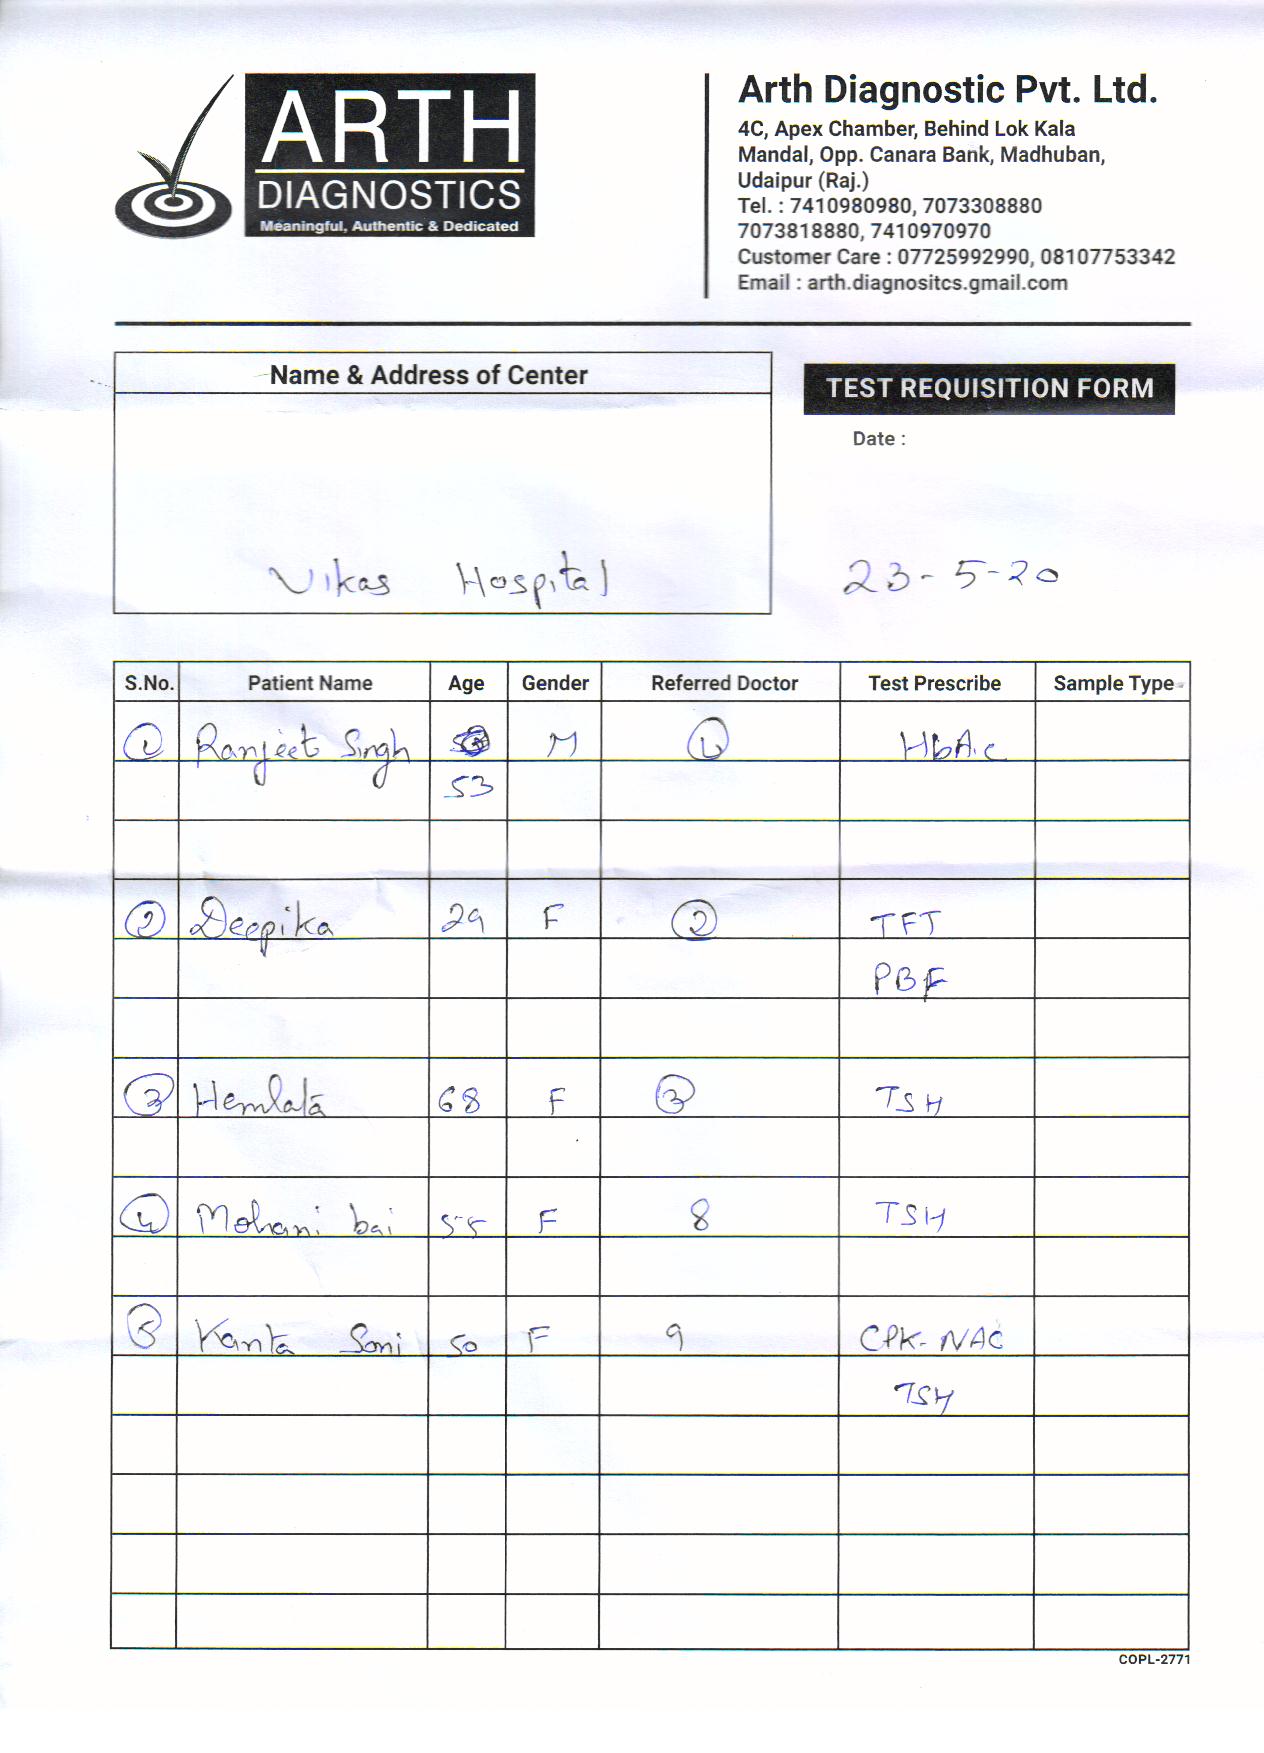 ARTH
DIAGNOSTICS
Meaningful, Authentic & Dedicated
Arth Diagnostic Pvt. Ltd.
4C, Apex Chamber, Behind Lok Kala
Mandal, Opp. Canara Bank, Madhuban,
Udaipur (Raj.)
Tel. : 7410980980, 7073308880
7073818880, 7410970970
Customer Care : 07725992990, 08107753342
Email : arth.diagnositcs.gmail.com
Name & Address of Center
Vikas Hospital
TEST REQUISITION FORM
Date :
23-5-20
S.No. Patient Name Age Gender Referred Doctor Test Prescribe Sample Type
1 Ranjeet Singh M 1 HbA1c
53
2 Deepika 29 F 2 TFT
PBF
3 Hemlata 68 F 3 TSH
4 Mohani bai 55 F 8 TSH
5 Kanta Soni 50 F 9 CPK-NAC
TSH
COPL-2771